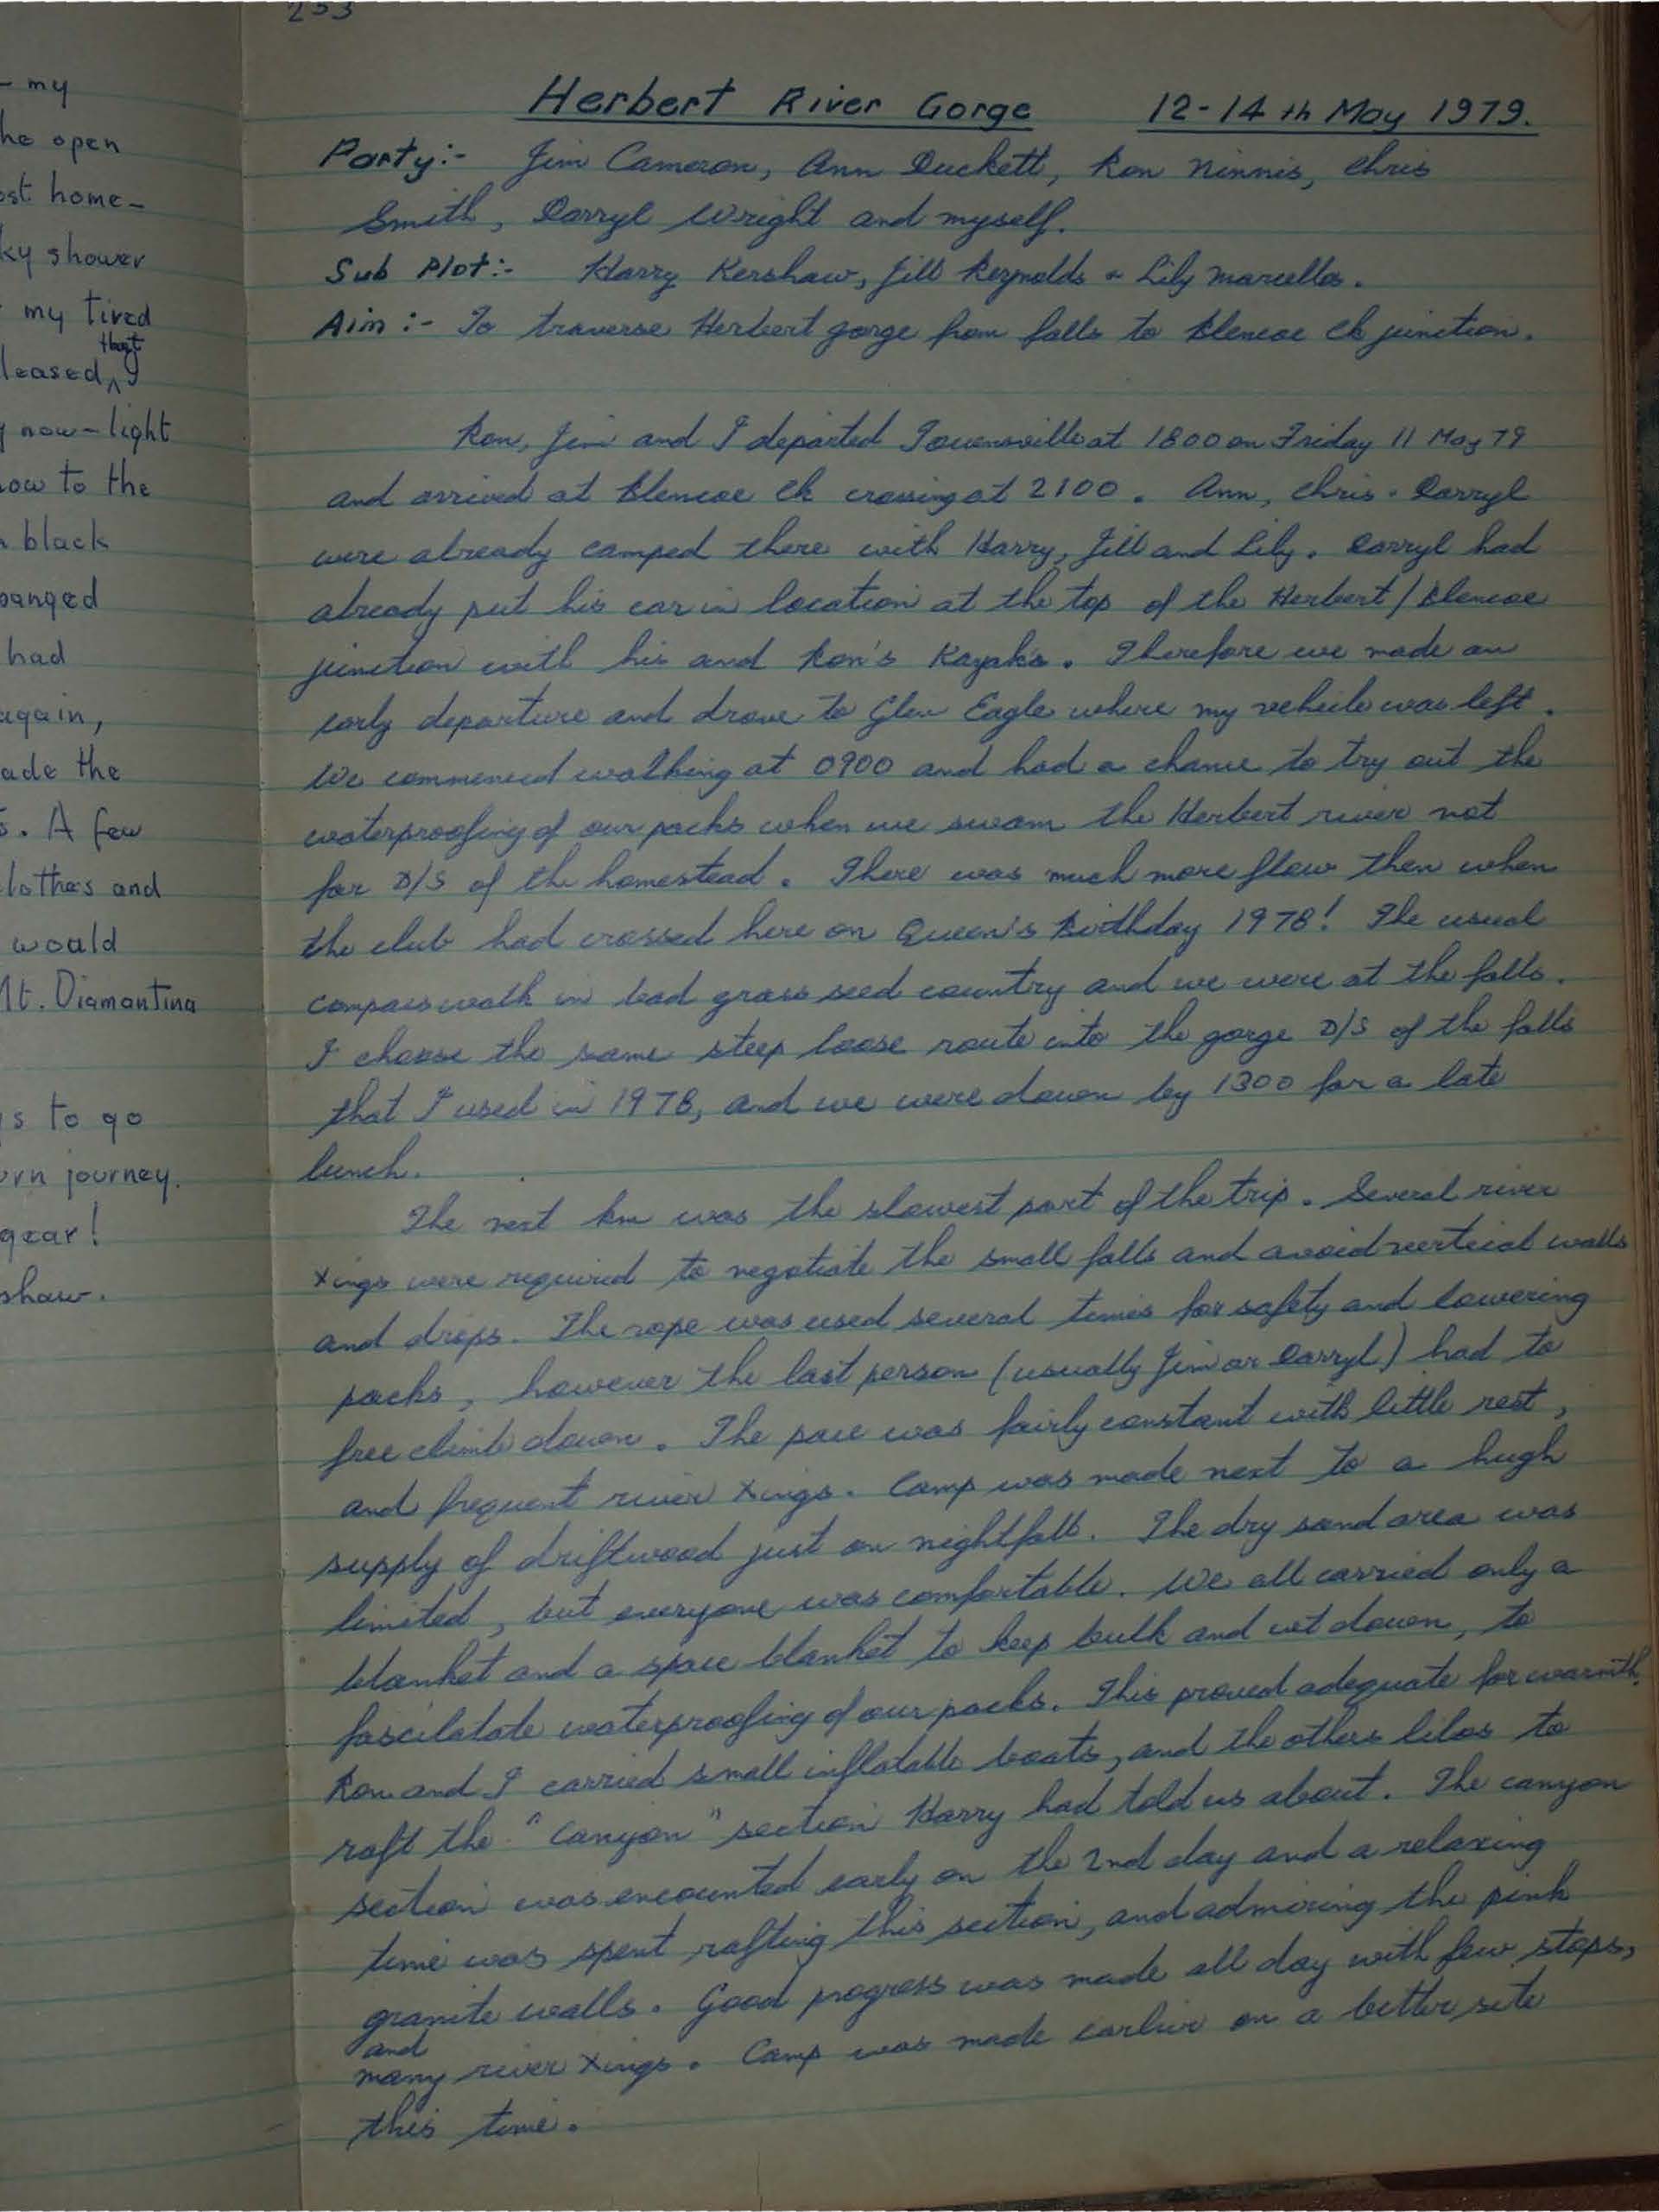 - my
he open
ost home-
ky shower
my tired
that
leased ^ I
now - light
ow to the
black
banged
had
again,
ade the
s. A few
lothes and
would
Mt. Diamantina
s to go
urn journey.
gear!
shaw.
253
Herbert River Gorge 12-14th May 1979.
Party:- Jim Cameron, Ann Duckett, Ron Ninnis, Chris
Smith, Darryl Wright and myself.
Sub Plot:- Harry Kershaw, Jill Reynolds & Lily Marcellos.
Aim:- To traverse Herbert gorge from falls to Blencoe Ck junction.
Ron, Jim and I departed Townsville at 1800 on Friday 11 May 79
and arrived at Blencoe Ck crossing at 2100. Ann, Chris & Darryl
were already camped there with Harry, Jill and Lily. Darryl had
already put his car in location at the top of the Herbert/Blencoe
junction with his and Ron's Kayaks. Therefore we made an
early departure and drove to Glen Eagle where my vehicle was left.
We commenced walking at 0900 and had a chance to try out the
waterproofing of our packs when we swam the Herbert river not
far D/S of the homestead. There was much more flow then when
the club had crossed here on Queen's Birthday 1978! The usual
compass walk in bad grass seed country and we were at the falls.
I choose the same steep loose route into the gorge D/S of the falls
that I used in 1978, and we were down by 1300 for a late
lunch.
The next km was the slowest part of the trip. Several river
Xings were required to negotiate the small falls and avoid vertical walls
and drops. The rope was used several times for safety and lowering
packs, however the last person (usually Jim or Darryl) had to
free climb down. The pace was fairly constant with little rest,
and frequent river Xings. Camp was made next to a hugh
supply of driftwood just on nightfall. The dry sand area was
limited, but everyone was comfortable. We all carried only a
blanket and a space blanket to keep bulk and wt down, to
fascilatate waterproofing of our packs. This proved adequate for warmth.
Ron and I carried small inflatable boats, and the others lilos to
raft the "Canyon" section Harry had told us about. The canyon
section was encounted early on the 2nd day and a relaxing
time was spent rafting this section, and admiring the pink
granite walls. Good progress was made all day with few stops,
and
many river Xings. Camp was made earlier on a better site
this time.